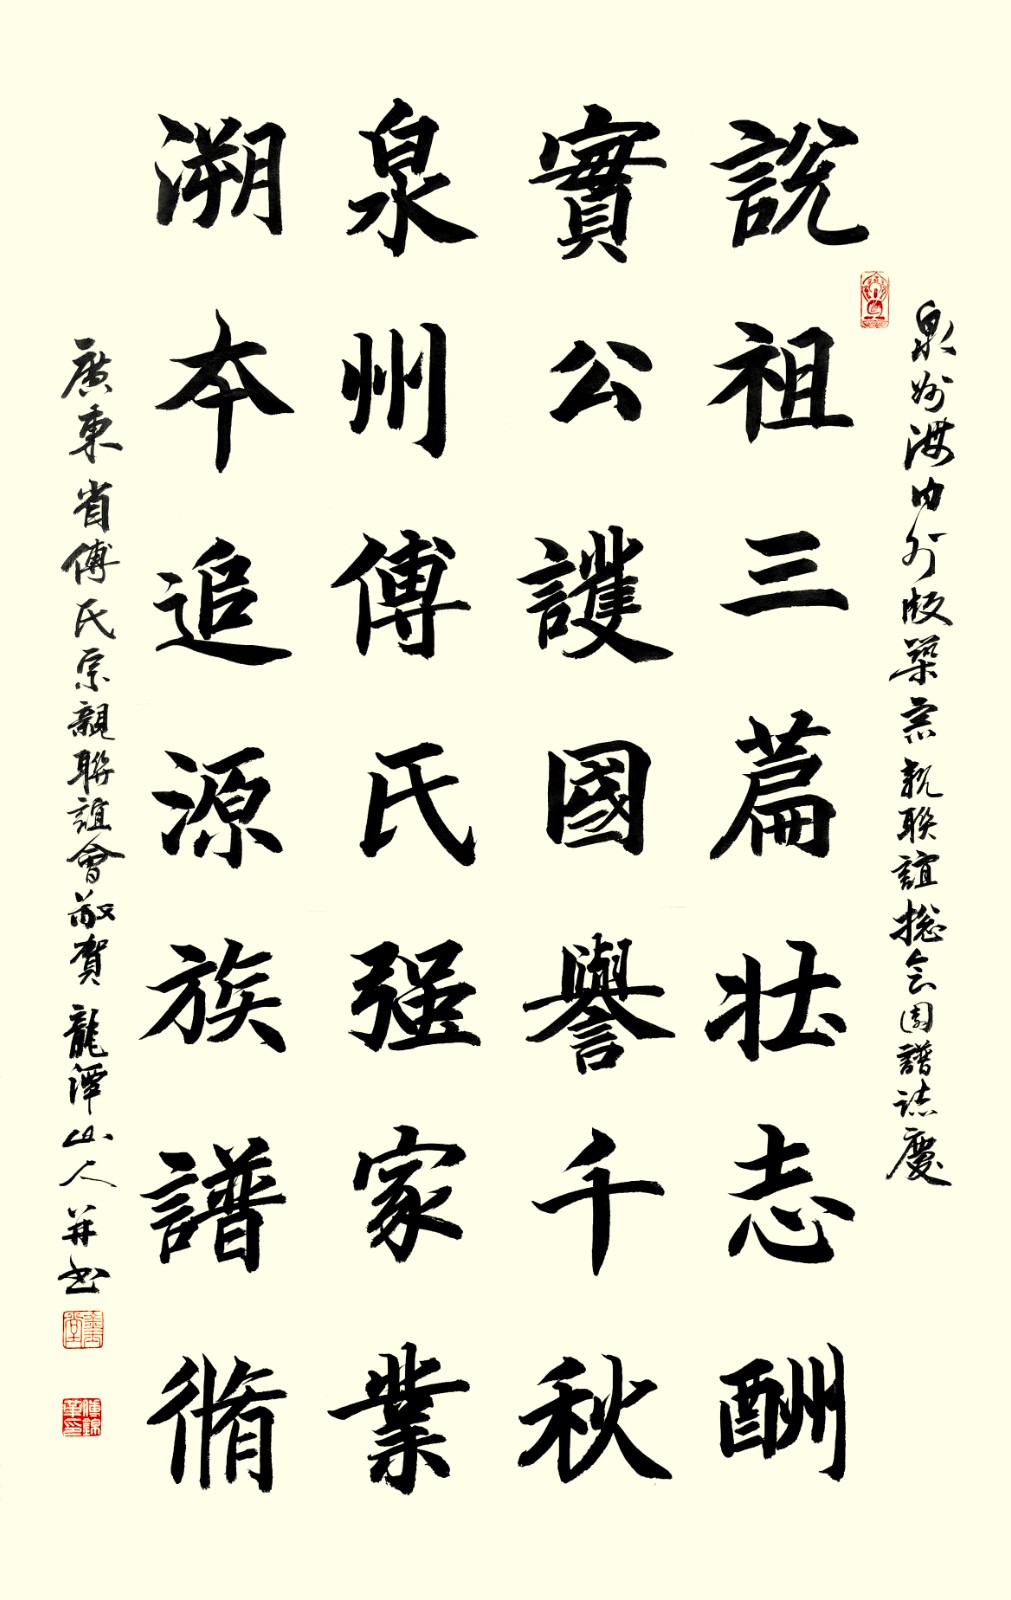 泉州海内外版築宗親联誼總会圆譜誌慶
説祖三篇壯志酬
實公護國譽千秋
泉州傅氏强家業
溯本追源族譜脩
廣東省傅氏宗親聯誼會敬賀 龍潭山人并书